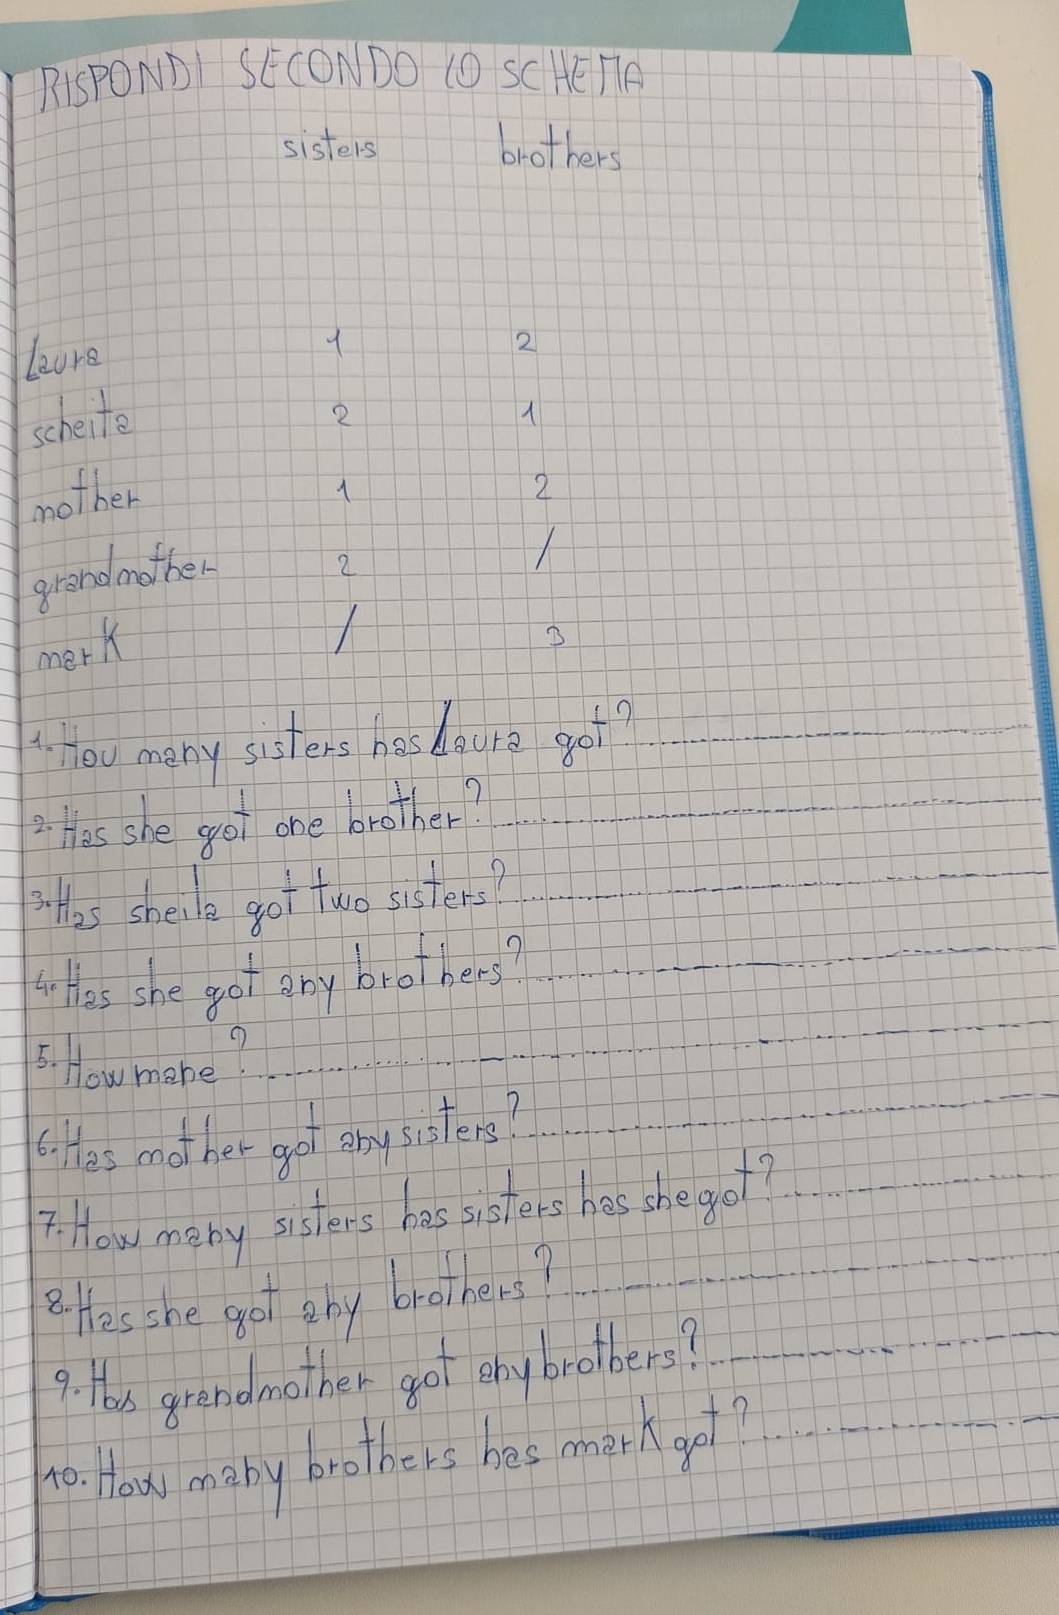 RISPONDI SECONDO LO SCHEMA
sisters brothers
Laura 1 2
scheila 2 1
mother 1 2
grandmother 2 /
mark / 3
1. How many sisters has Laura got?
2. Has she got one brother?
3. Has sheila got two sisters?
4. Has she got any brothers?
5. How mane?
6. Has mother got any sisters?
7. How many sisters has sisters has she got?
8. Has she got any brothers?
9. Has grandmother got any brothers?
10. How many brothers has mark got?